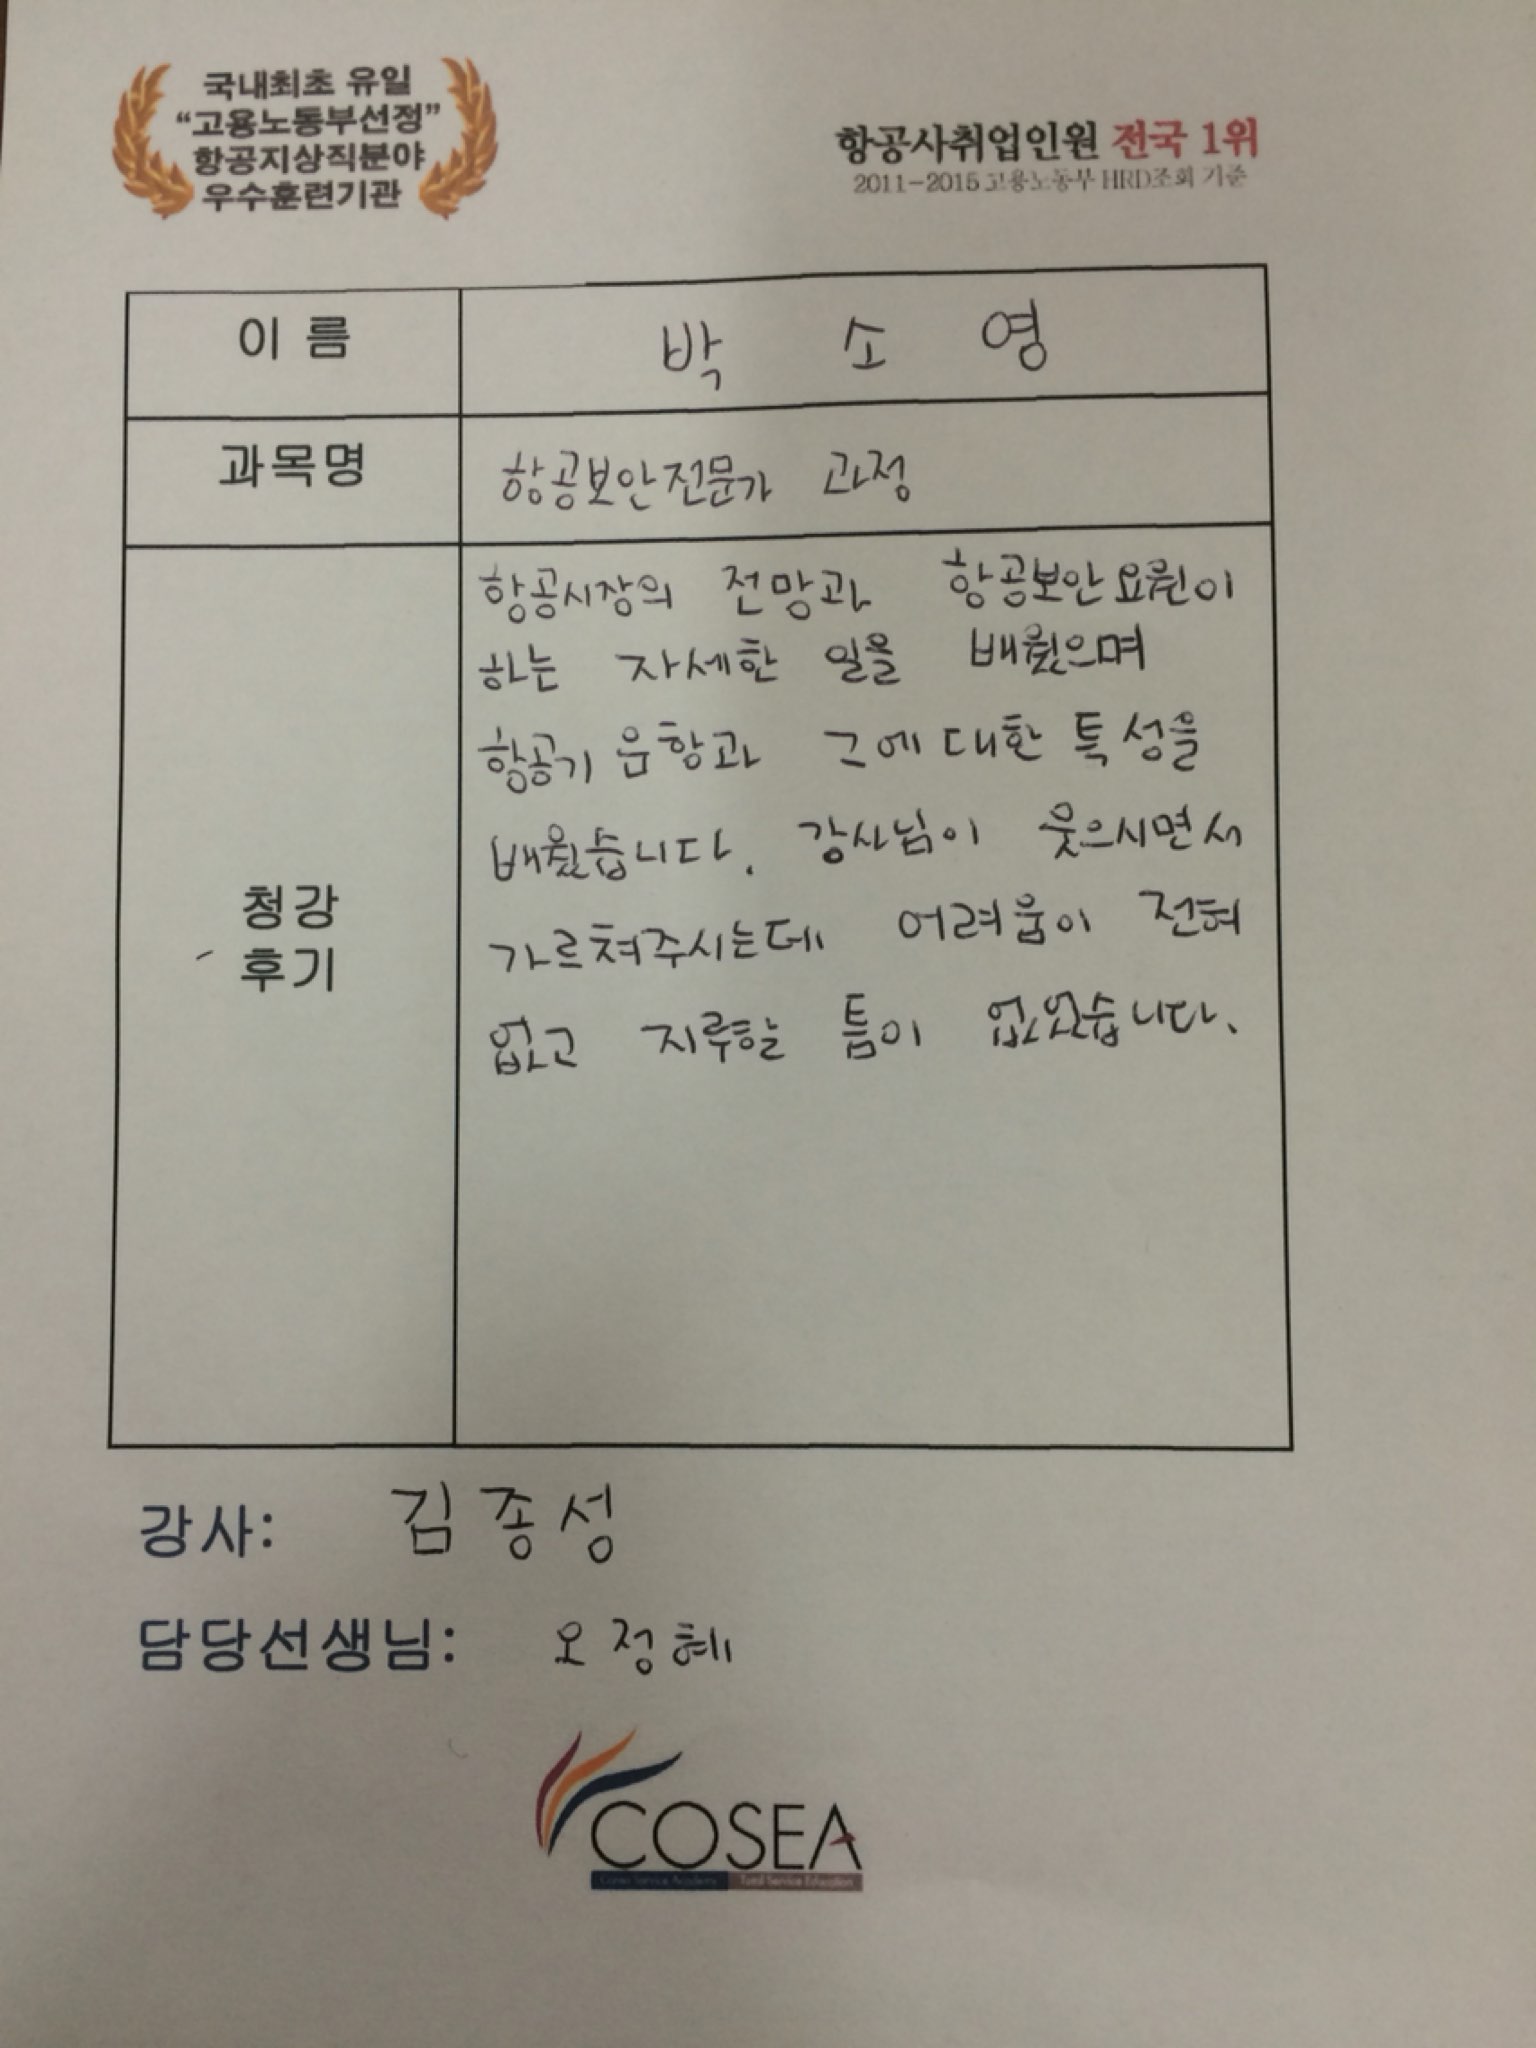 국내최초 유일
“고용노동부선정”
항공지상직분야
우수훈련기관
항공사취업인원 전국 1위
2011-2015 고용노동부 HRD조회 기준
이 름
박 소 영
과목명
항공보안전문가 과정
청강
후기
항공시장의 전망과 항공보안요원이
하는 자세한 일을 배웠으며
항공기 음항과 그에 대한 특성을
배웠습니다. 강사님이 웃으시면서
가르쳐주시는데 어려움이 전혀
없고 지루할 틈이 없었습니다.
강사: 김종성
담당선생님: 오정혜
COSEA
Corea Service Academy Total Service Education